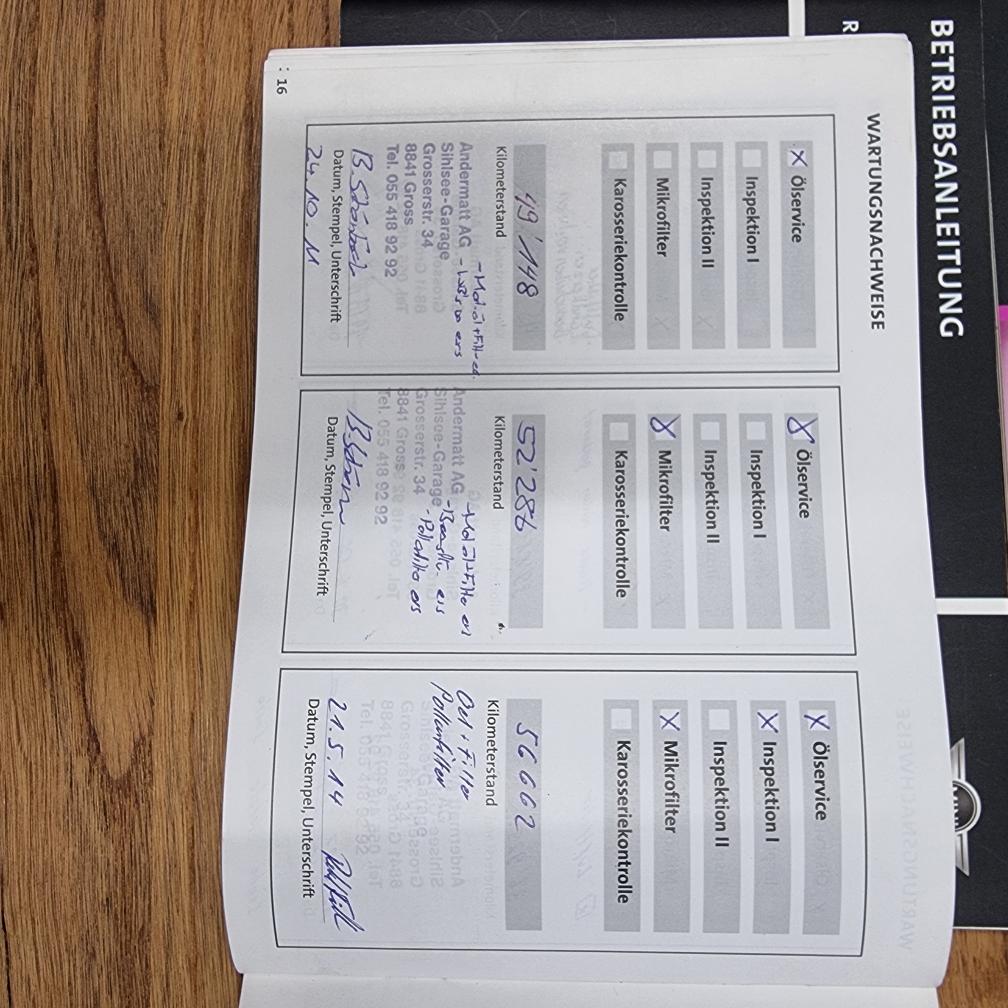 BETRIEBSANLEITUNG
R
WARTUNGSNACHWEISE
x Ölservice
Inspektion I
Inspektion II
Mikrofilter
Karosseriekontrolle
49'148
Kilometerstand
- Mot.öl + Filter
Andermatt AG
Sihlsee-Garage
Grosserstr. 34
8841 Gross
Tel. 055 418 92 92
Datum, Stempel, Unterschrift
24.10.11
x Ölservice
Inspektion I
Inspektion II
x Mikrofilter
Karosseriekontrolle
52'286
Kilometerstand
- Mot öl + Filter ers
Andermatt AG
Sihlsee-Garage
Grosserstr. 34
- Pollenfilter ers
8841 Gross
Tel. 055 418 92 92
Datum, Stempel, Unterschrift
x Ölservice
x Inspektion I
Inspektion II
x Mikrofilter
Karosseriekontrolle
56662
Kilometerstand
Oel + Filter
Pollenfilter
21.5.14
Datum, Stempel, Unterschrift
: 16